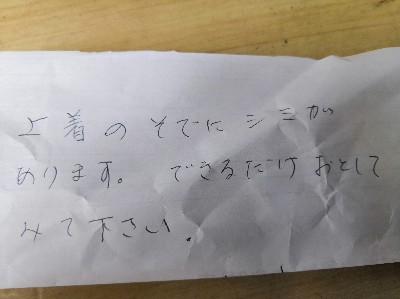 上着のそでにシミが
あります。 できるだけおとして
みて下さい.